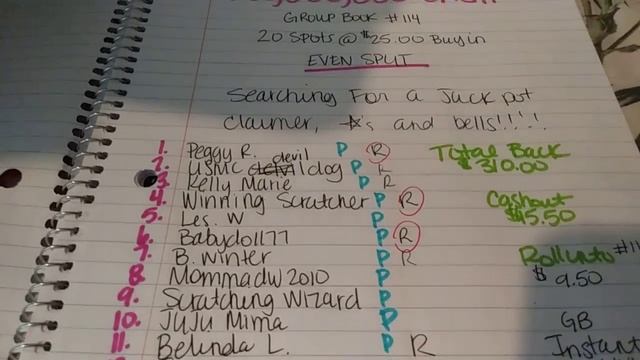 GROUP BOOK #114
20 SPOTS @ $25.00 Buyin
EVEN SPLIT
Searching For a Jackpot
claimer, ☆s and bells!!!!
1. Peggy R. P R
2. USMC devil dog P R
3. Kelly Marie P R
4. Winning Scratcher P R
5. Les. W P
6. Babydoll77 P R
7. B. Winter P R
8. Mommadw2010 P
9. Scratching Wizard P
10. JuJu Mima P
11. Belinda L. P R
Total Back
$310.00
Cashout
$15.50
Rollinto #11
$9.50
GB
Instant